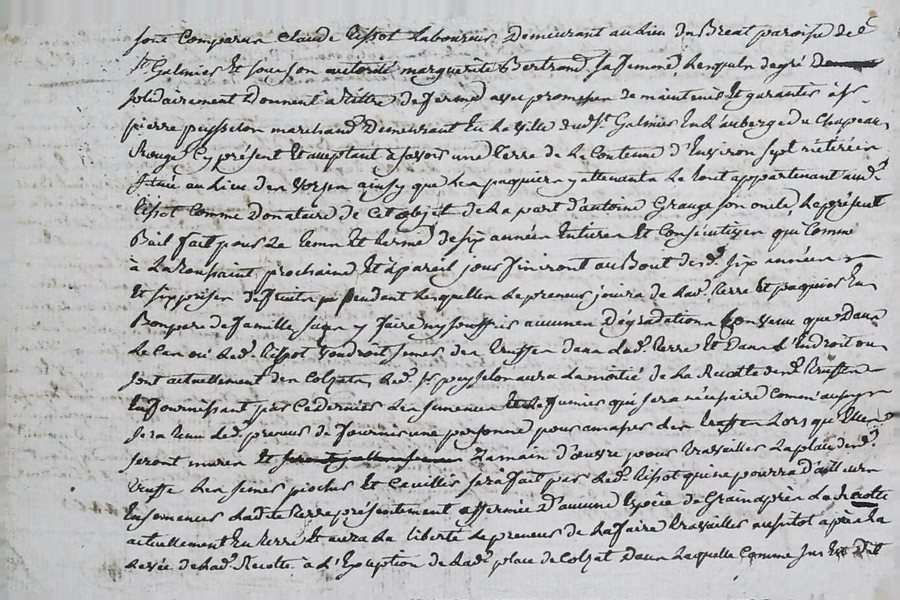 sont Comparus Claude Rissot Laboureur Demeurant au Lieu du Breat paroisse de
St Galmier Et sous son autorité marguerite Bertrand sa femme, Lesquels de gré
solidairement Donnent à titre de ferme avec promesse de maintenir Et garantir à Sr
pierre peysselon marchand Demeurant En La Ville dud. St Galmier En L'auberge du Chapeau
Rouge Cy présent Et acceptant à savoir une terre de La Contenue d'Environ sept
située au Lieu des ainsy que Les paquiers y attenants Le tout appartenant aud.
Rissot Comme Donataire de Cet objet de La part d'antoine Grange son oncle, Le présent
Bail fait pour Le tems Et terme de six années Entieres Et Consécutives qui Comme
à La Toussaint prochaine Et à pareil jour finiront au Bout desd. six années
Et six prises de fruits pendant Lesquelles Le preneur jouira de Lad. terre Et paquier En
Bon pere de famille sans y faire ny souffrir aucunes Dégradations Convenu que Dans
Le Cas où Led. Rissot Voudroit semer des truffes dans Lad. terre Et Dans L'Endroit où
sont actuellement des Colzats, Led. Sr peysselon aura La moitié de La Recolte desd. truffes
En fournissant par Ce dernier Les semences Et Le fumier qui sera nécessaire Comm'aussy
sera tenu Led. preneur de fournir une personne pour amasser des truffes Lorsqu'Elles
seront mures Et La main d'œuvre pour travailler La place desd.
truffes Les semer piocher Et Cueillir sera fait par Led. Rissot qui ne pourra d'ailleurs
Ensemencer Ladite terre présentement affermée D'aucune Espèce de Grains après La Recolte
actuellement En terre Et aura La liberté Le preneur de La faire travailler aussitot après La
Levée de Lad. Recolte à L'Exception de Lad. place de Colzat Dans Laquelle Comme Il Est Dit